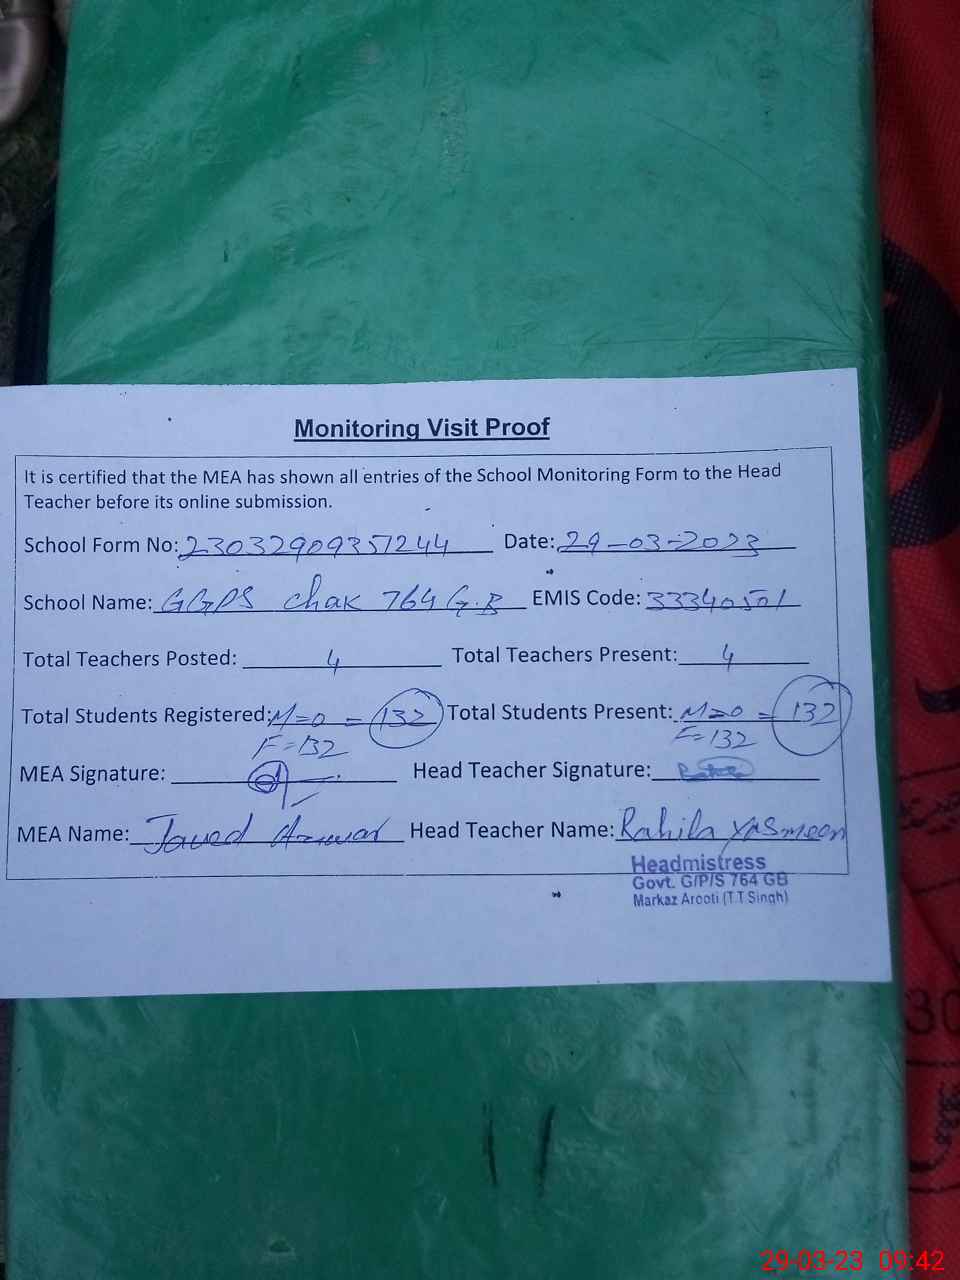 Monitoring Visit Proof
It is certified that the MEA has shown all entries of the School Monitoring Form to the Head
Teacher before its online submission.
School Form No: 23032909357244 Date: 29-03-2023
School Name: GGPS Chak 764 G.B EMIS Code: 33340501
Total Teachers Posted: 4 Total Teachers Present: 4
Total Students Registered: M=0 = 132 Total Students Present: M=0 = 132
F=132 F=132
MEA Signature: Head Teacher Signature:
MEA Name: Javed Anwar Head Teacher Name: Rahila Yasmeen
Headmistress
Govt. G/P/S 764 GB
Markaz Arooti (T.T Singh)
30
29-03-23 09:42